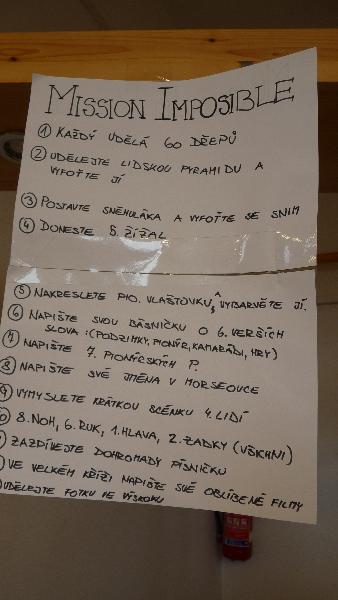 MISSION IMPOSIBLE
① KAŽDÝ UDĚLÁ 60 DŘEPŮ
② UDĚLEJTE LIDSKOU PYRAMIDU A
VYFOŤTE JÍ
③ POSTAVTE SNĚHULÁKA A VYFOŤTE SE SNIM
④ DONESTE 5. ŽÍŽAL
⑤ NAKRESLETE PIO. VLAŠŤOVKU, A VYBARVĚTE JÍ.
⑥ NAPIŠTE SVOU BÁSNIČKU O 6. VERŠÍCH
SLOVA :(PODZIMKY, PIONÝR, KAMARÁDI, HRY)
⑦ NAPIŠTE 7. PIONÝRSKÝCH P.
⑧ NAPIŠTE SVÉ JMÉNA V MORSEOVCE
9 VYMYSLETE KRÁTKOU SCÉNKU 4. LIDÍ
0 8. NOH, 6. RUK, 1. HLAVA, 2. ZADKY (VŠICHNI)
ZAZPÍVEJTE DOHROMADY PÍSNIČKU
VE VELKÉM KŘÍŽI NAPIŠTE SVÉ OBLÍBENÉ FILMY
UDĚLEJTE FOTKU VE VÝSKOKU